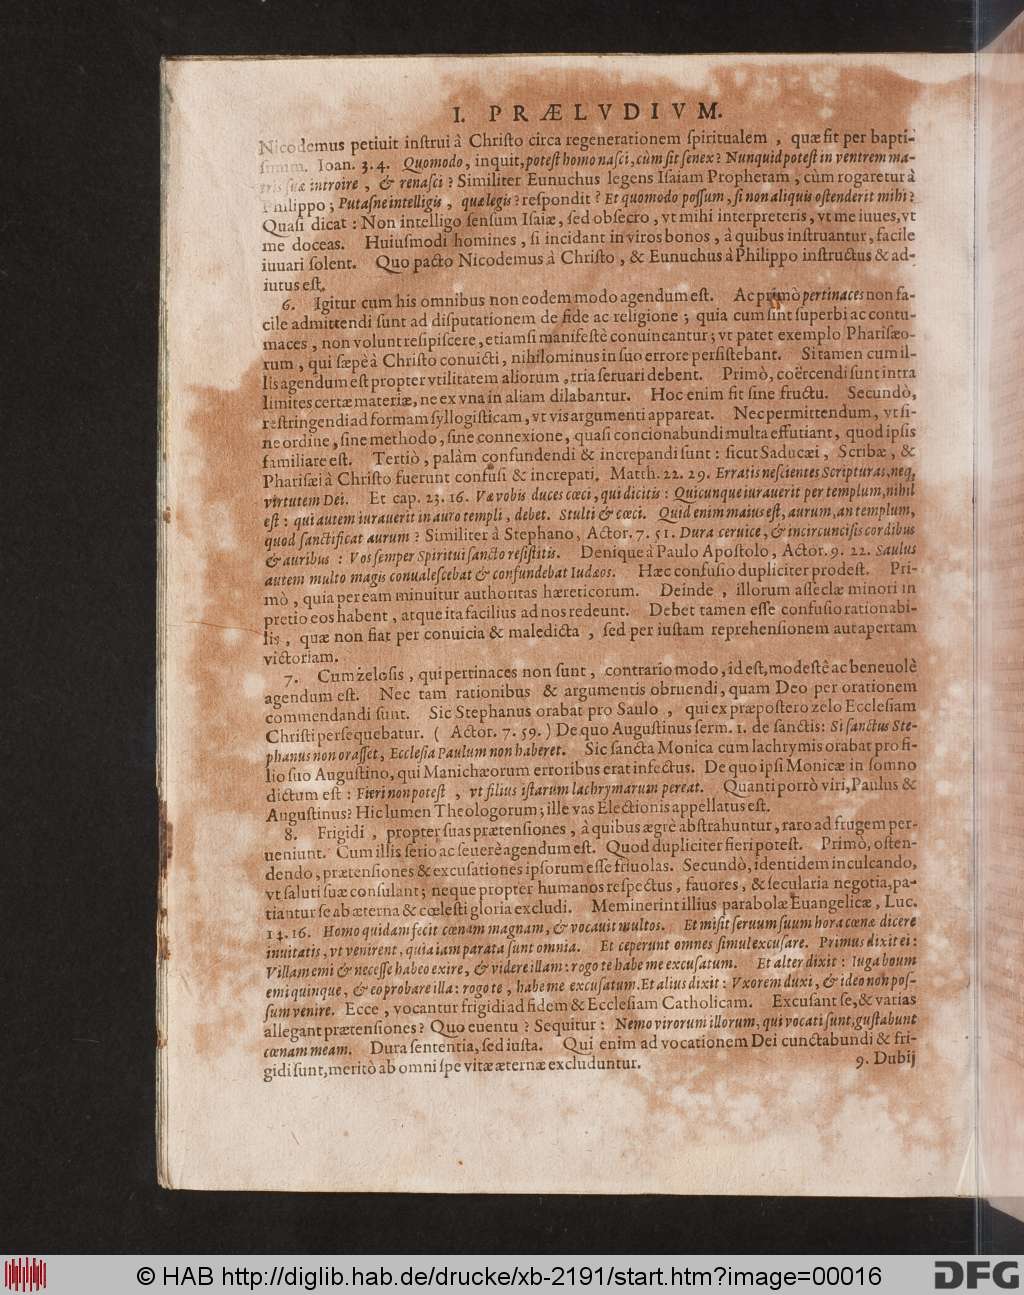 I. PRÆLVDIVM.
Nicodemus petiuit inſtrui à Chriſto circa regenerationem ſpiritualem, quæ fit per bapti-
ſmum. Ioan. 3. 4. Quomodo, inquit, poteſt homo naſci, cùm ſit ſenex? Nunquid poteſt in ventrem ma-
tris ſuæ introire, & renaſci? Similiter Eunuchus legens Iſaiam Prophetam, cùm rogaretur à
Philippo; Putaſne intelligis, quæ legis? reſpondit? Et quomodo poſſum, ſi non aliquis oſtenderit mihi?
Quaſi dicat: Non intelligo ſenſum Iſaiæ, ſed obſecro, vt mihi interpreteris, vt me iuues, vt
me doceas. Huiuſmodi homines, ſi incidant in viros bonos, à quibus inſtruantur, facile
iuuari ſolent. Quo pacto Nicodemus à Chriſto, & Eunuchus à Philippo inſtructus & ad-
iutus eſt.
6. Igitur cum his omnibus non eodem modo agendum eſt. Ac primò pertinaces non fa-
cile admittendi ſunt ad diſputationem de fide ac religione; quia cum ſint ſuperbi ac contu-
maces, non volunt reſipiſcere, etiamſi manifeſtè conuincantur; vt patet exemplo Phariſæo-
rum, qui ſæpè à Chriſto conuicti, nihilominus in ſuo errore perſiſtebant. Si tamen cum il-
lis agendum eſt propter vtilitatem aliorum, tria ſeruari debent. Primò, coërcendi ſunt intra
limites certæ materiæ, ne ex vna in aliam dilabantur. Hoc enim fit ſine fructu. Secundò,
reſtringendi ad formam ſyllogiſticam, vt vis argumenti appareat. Nec permittendum, vt ſi-
ne ordine, ſine methodo, ſine connexione, quaſi concionabundi multa effutiant, quod ipſis
familiare eſt. Tertiò, palàm confundendi & increpandi ſunt: ſicut Saducæi, Scribæ, &
Phariſæi à Chriſto fuerunt confuſi & increpati, Matth. 22. 29. Erratis neſcientes Scripturas, neq;
virtutem Dei. Et cap. 23. 16. Væ vobis duces cœci, qui dicitis: Quicunque iurauerit per templum, nihil
eſt: qui autem iurauerit in auro templi, debet. Stulti & cœci. Quid enim maius eſt, aurum, an templum,
quod ſanctificat aurum? Similiter à Stephano, Actor. 7. 51. Dura ceruice, & incircunciſis cordibus
& auribus: Vos ſemper Spiritui ſancto reſiſtitis. Denique à Paulo Apoſtolo, Actor. 9. 22. Saulus
autem multo magis conualeſcebat & confundebat Iudæos. Hæc confuſio dupliciter prodeſt. Pri-
mò, quia per eam minuitur authoritas hæreticorum. Deinde, illorum aſſeclæ minori in
pretio eos habent, atque ita facilius ad nos redeunt. Debet tamen eſſe confuſio rationabi-
lis, quæ non fiat per conuicia & maledicta, ſed per iuſtam reprehenſionem aut apertam
victoriam.
7. Cum zeloſis, qui pertinaces non ſunt, contrario modo, id eſt, modeſtè ac beneuolè
agendum eſt. Nec tam rationibus & argumentis obruendi, quam Deo per orationem
commendandi ſunt. Sic Stephanus orabat pro Saulo, qui ex præpoſtero zelo Eccleſiam
Chriſti perſequebatur. ( Actor. 7. 59. ) De quo Auguſtinus ſerm. 1. de ſanctis: Si ſanctus Ste-
phanus non oraſſet, Eccleſia Paulum non haberet. Sic ſancta Monica cum lachrymis orabat pro fi-
lio ſuo Auguſtino, qui Manichæorum erroribus erat infectus. De quo ipſi Monicæ in ſomno
dictum eſt: Fieri non poteſt, vt filius iſtarum lachrymarum pereat. Quanti porrò viri, Paulus &
Auguſtinus? Hic lumen Theologorum; ille vas Electionis appellatus eſt.
8. Frigidi, propter ſuas prætenſiones, à quibus ægrè abſtrahuntur, raro ad frugem per-
ueniunt. Cum illis ſerio ac ſeuerè agendum eſt. Quod dupliciter fieri poteſt. Primò, oſten-
dendo, prætenſiones & excuſationes ipſorum eſſe friuolas. Secundò, identidem inculcando,
vt ſaluti ſuæ conſulant; neque propter humanos reſpectus, fauores, & ſecularia negotia, pa-
tiantur ſe ab æterna & cœleſti gloria excludi. Meminerint illius parabolæ Euangelicæ, Luc.
14. 16. Homo quidam fecit cœnam magnam, & vocauit multos. Et miſit ſeruum ſuum hora cœnæ dicere
inuitatis, vt venirent, quia iam parata ſunt omnia. Et ceperunt omnes ſimul excuſare. Primus dixit ei:
Villam emi & neceſſe habeo exire, & videre illam: rogo te habe me excuſatum. Et alter dixit: Iuga boum
emi quinque, & eo probare illa: rogo te, habe me excuſatum. Et alius dixit: Vxorem duxi, & ideo non poſ-
ſum venire. Ecce, vocantur frigidi ad fidem & Eccleſiam Catholicam. Excuſant ſe, & varias
allegant prætenſiones? Quo euentu? Sequitur: Nemo virorum illorum, qui vocati ſunt, guſtabunt
cœnam meam. Dura ſententia, ſed iuſta. Qui enim ad vocationem Dei cunctabundi & fri-
gidi ſunt, meritò ab omni ſpe vitæ æternæ excluduntur.
9. Dubij
© HAB http://diglib.hab.de/drucke/xb-2191/start.htm?image=00016
DFG